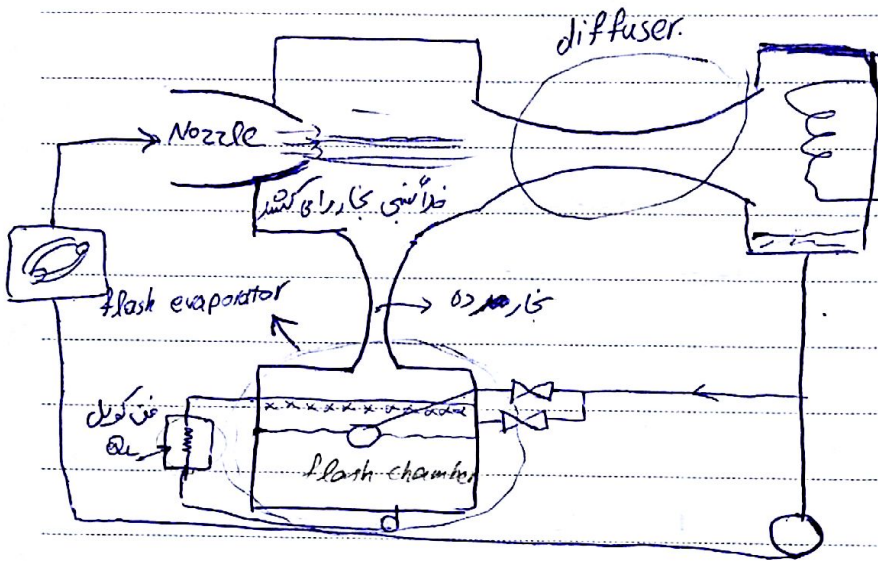 diffuser.
Nozzle
بخار را می کشد
flash evaporator
بخار
فن کویل
QL
flash chamber